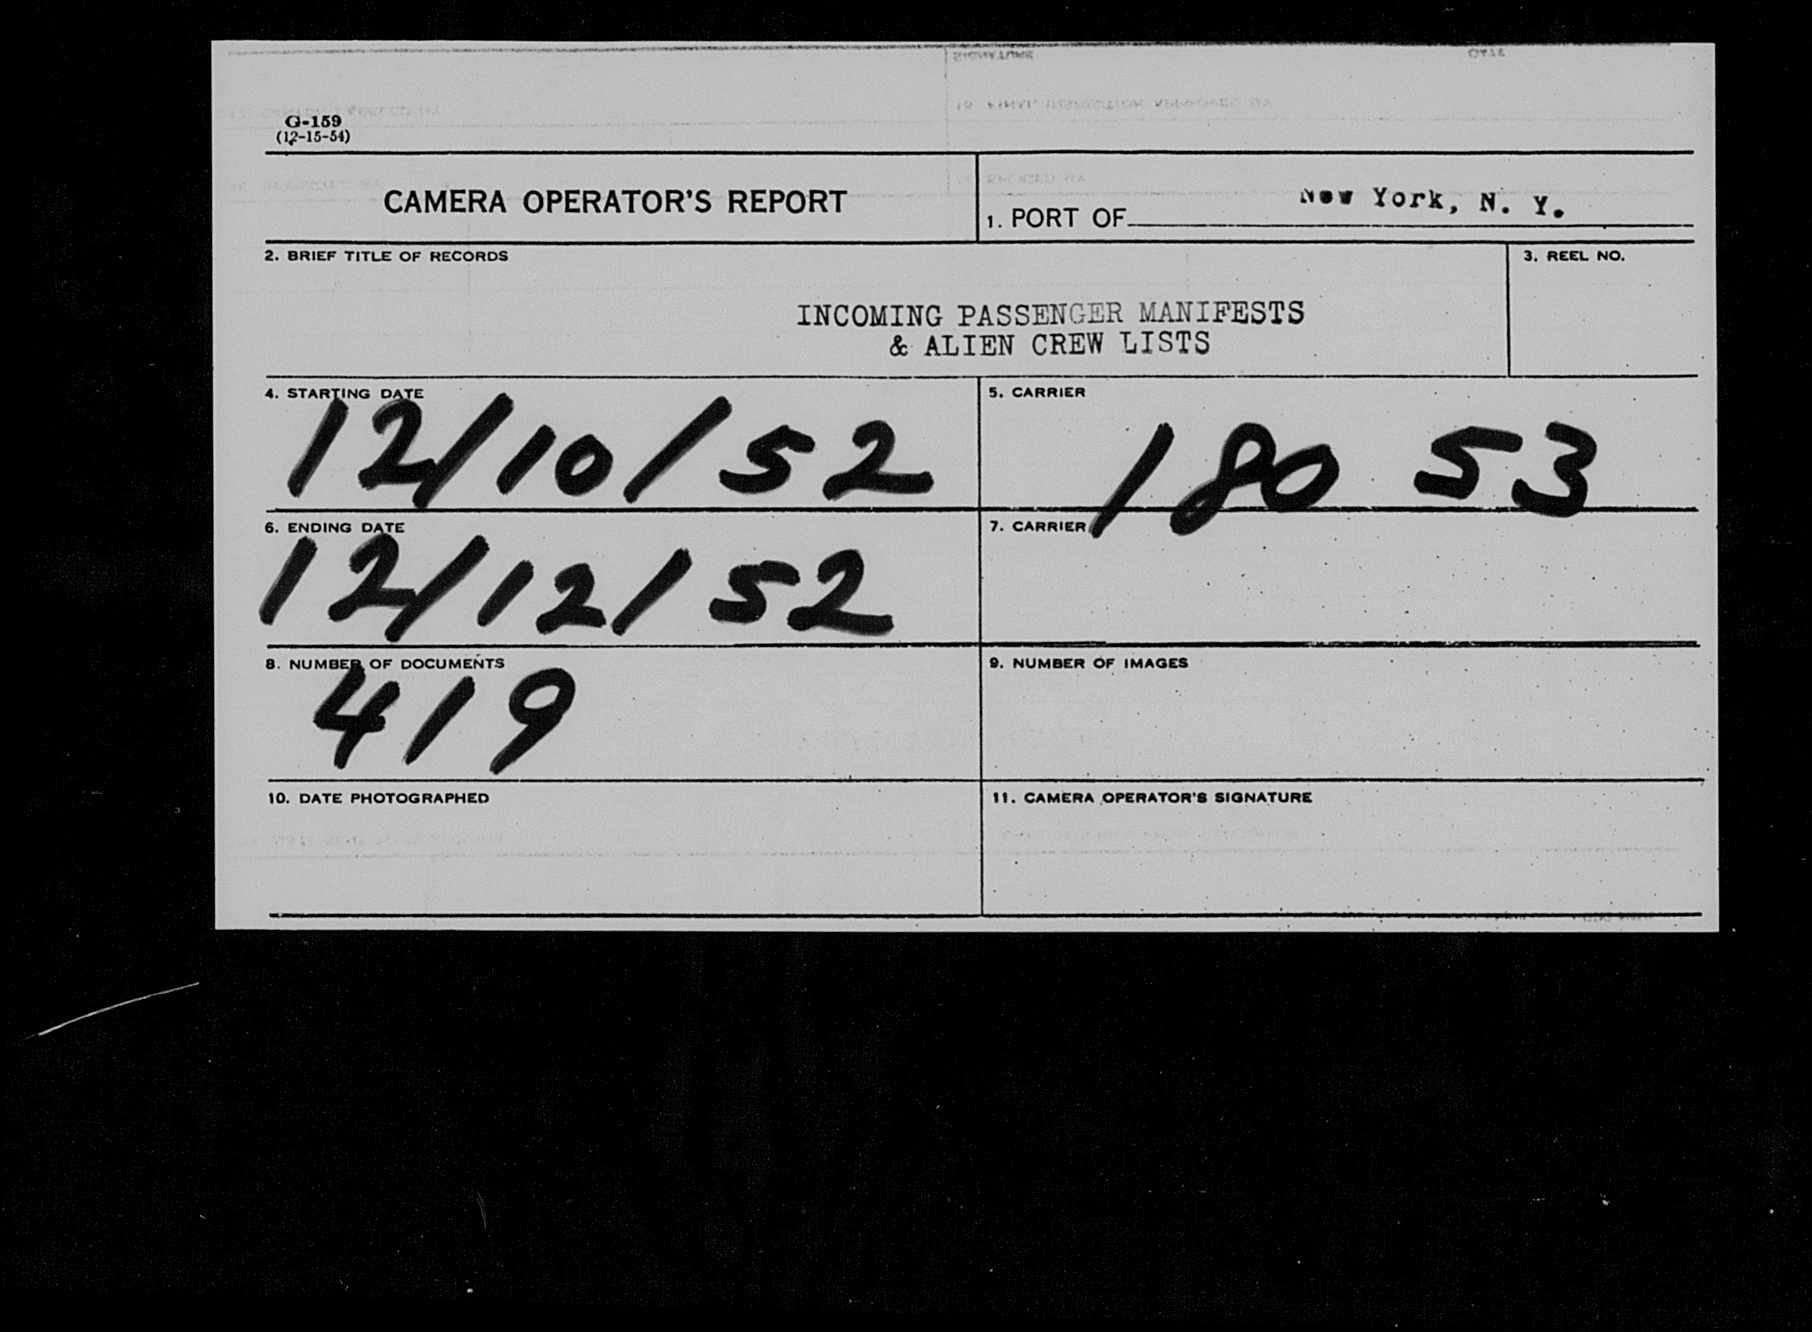 G-159
(12-15-54)
CAMERA OPERATOR'S REPORT
1. PORT OF New York, N. Y.
2. BRIEF TITLE OF RECORDS
3. REEL NO.
INCOMING PASSENGER MANIFESTS
& ALIEN CREW LISTS
4. STARTING DATE
12/10/52
5. CARRIER
180 53
6. ENDING DATE
12/12/52
7. CARRIER
8. NUMBER OF DOCUMENTS
419
9. NUMBER OF IMAGES
10. DATE PHOTOGRAPHED
11. CAMERA OPERATOR'S SIGNATURE